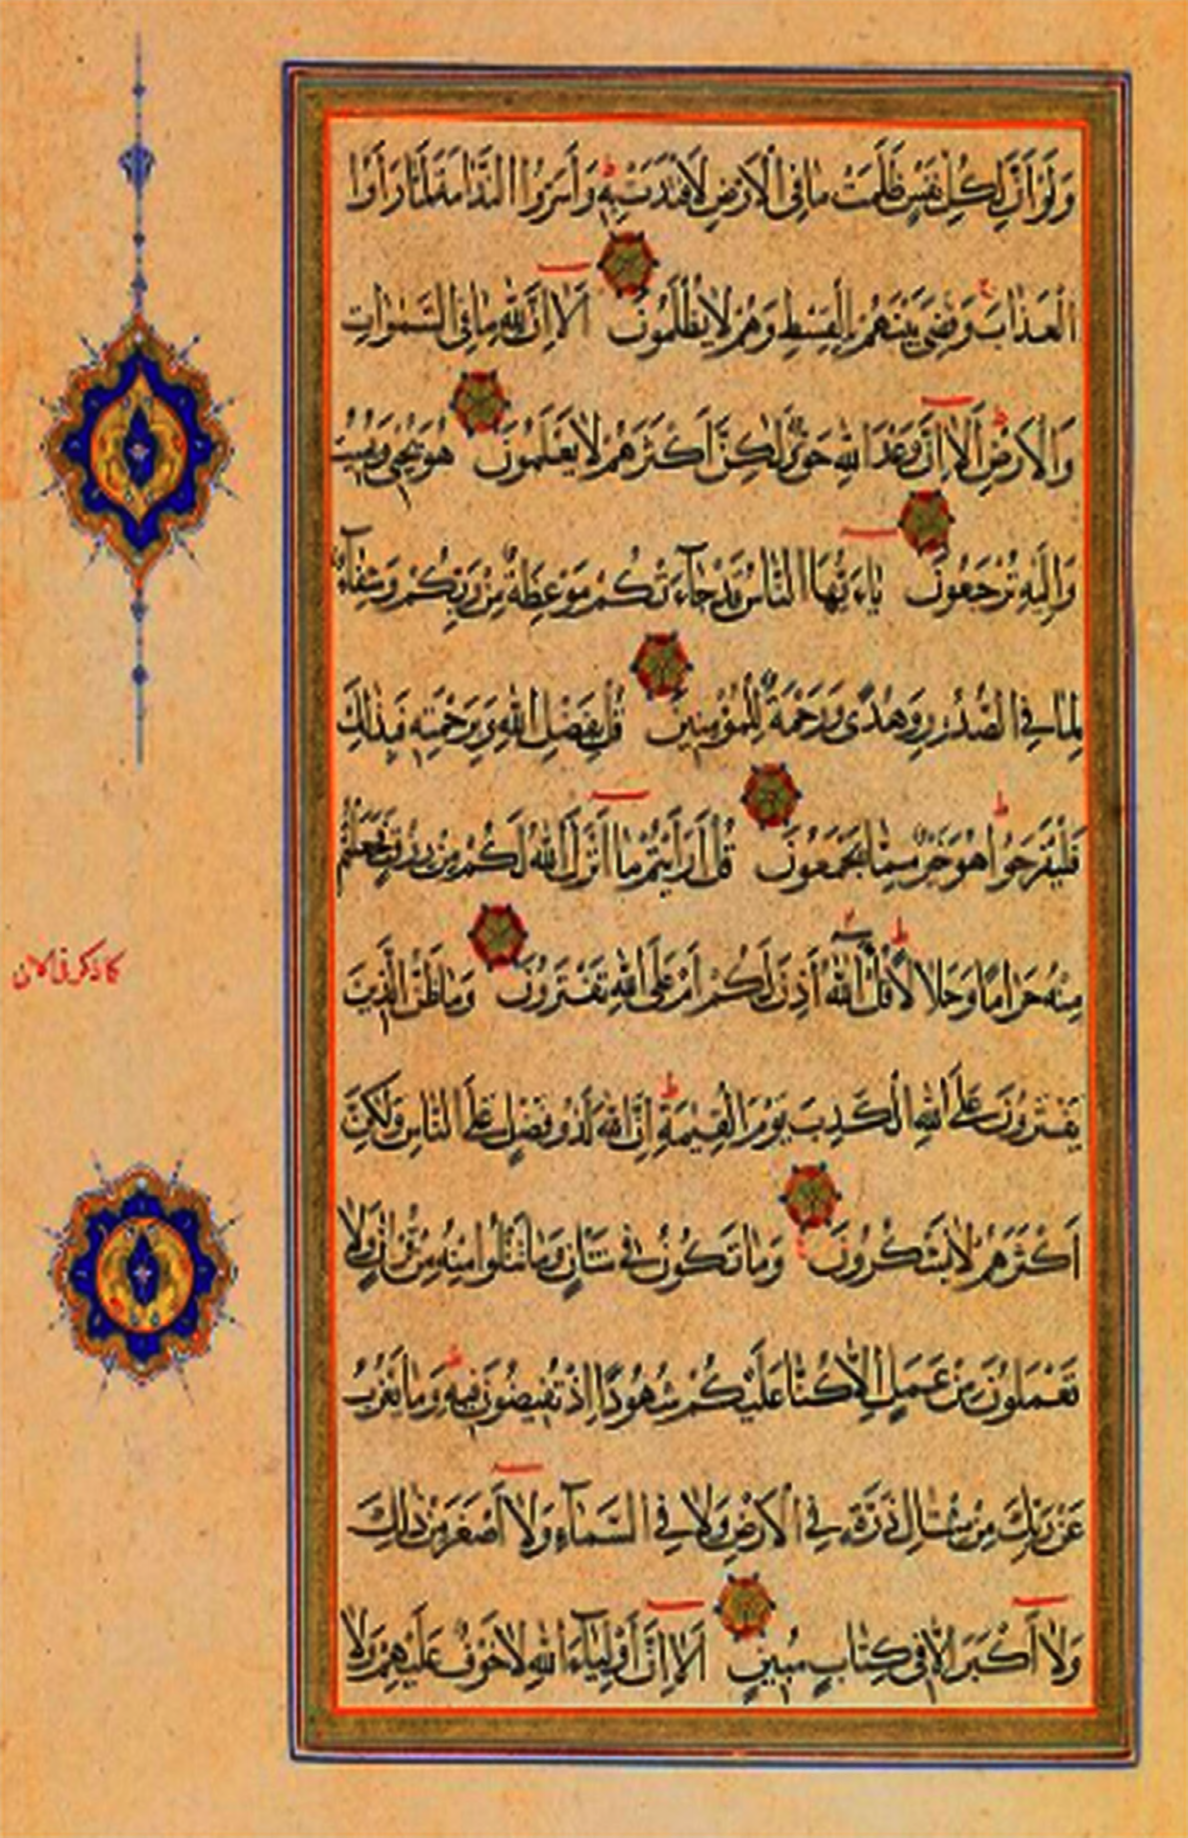 وَلَوْ أَنَّ لِكُلِّ نَفْسٍ ظَلَمَتْ مَا فِي الْاَرْضِ لَافْتَدَتْ بِهِ وَأَسَرُّوا النَّدَامَةَ لَمَّا رَأَوُا
الْعَذَابَ وَقُضِيَ بَيْنَهُمْ بِالْقِسْطِ وَهُمْ لَا يُظْلَمُونَ اَلَا اِنَّ لِلّٰهِ مَا فِي السَّمٰوَاتِ
وَالْاَرْضِ اَلَا اِنَّ وَعْدَ اللّٰهِ حَقٌّ وَلٰكِنَّ اَكْثَرَهُمْ لَا يَعْلَمُونَ هُوَ يُحْيِي وَيُمِيتُ
وَاِلَيْهِ تُرْجَعُونَ يَاءَيُّهَا النَّاسُ قَدْ جَاءَتْكُمْ مَوْعِظَةٌ مِنْ رَبِّكُمْ وَشِفَاءٌ
لِمَا فِي الصُّدُورِ وَهُدًى وَرَحْمَةٌ لِلْمُؤْمِنِينَ قُلْ بِفَضْلِ اللّٰهِ وَبِرَحْمَتِهِ فَبِذٰلِكَ
فَلْيَفْرَحُوا هُوَ خَيْرٌ مِمَّا يَجْمَعُونَ قُلْ اَرَاَيْتُمْ مَا اَنْزَلَ اللّٰهُ لَكُمْ مِنْ رِزْقٍ فَجَعَلْتُمْ
مِنْهُ حَرَامًا وَحَلَالًا قُلْ اٰللّٰهُ اَذِنَ لَكُمْ اَمْ عَلَى اللّٰهِ تَفْتَرُونَ وَمَا ظَنُّ الَّذِينَ
يَفْتَرُونَ عَلَى اللّٰهِ الْكَذِبَ يَوْمَ الْقِيٰمَةِ اِنَّ اللّٰهَ لَذُو فَضْلٍ عَلَى النَّاسِ وَلٰكِنَّ
اَكْثَرَهُمْ لَا يَشْكُرُونَ وَمَا تَكُونُ فِي شَاْنٍ وَمَا تَتْلُوا مِنْهُ مِنْ قُرْاٰنٍ وَلَا
تَعْمَلُونَ مِنْ عَمَلٍ اِلَّا كُنَّا عَلَيْكُمْ شُهُودًا اِذْ تُفِيضُونَ فِيهِ وَمَا يَعْزُبُ
عَنْ رَبِّكَ مِنْ مِثْقَالِ ذَرَّةٍ فِي الْاَرْضِ وَلَا فِي السَّمَاءِ وَلَا اَصْغَرَ مِنْ ذٰلِكَ
وَلَا اَكْبَرَ اِلَّا فِي كِتَابٍ مُبِينٍ اَلَا اِنَّ اَوْلِيَاءَ اللّٰهِ لَا خَوْفٌ عَلَيْهِمْ وَلَا